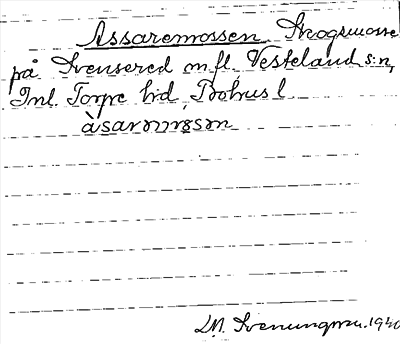 Assaremossen Skogsmosse
på Svensered m.fl. Vesteland s:n,
Inl. Torpe hd, Bohusl
àsarmmsm
LM. Svenungsson. 1940